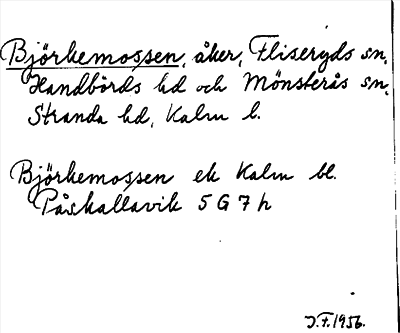 Björkemossen, åker, Fliseryds sn,
Handbörds hd och Mönsterås sn,
Stranda hd, Kalm l.
Björkemossen ek Kalm bl.
Påskallavik 5 G 7 h
J.F. 1956.